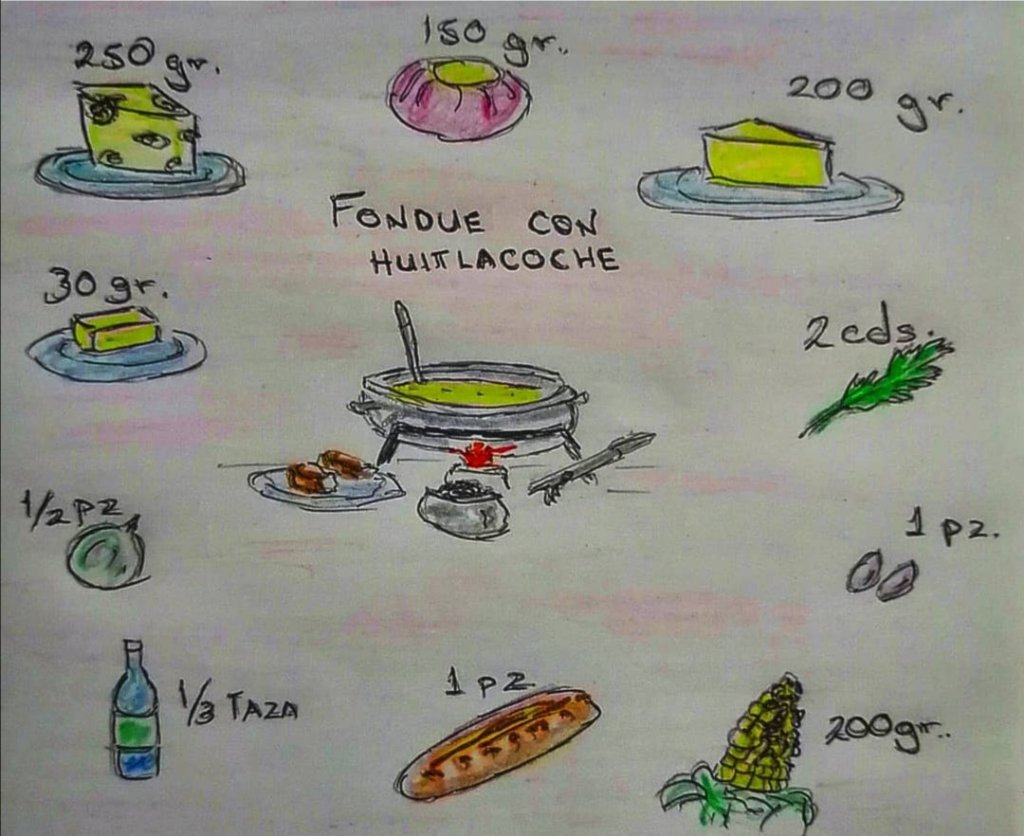 250 gr.
150 gr.
200 gr.
FONDUE CON
HUITLACOCHE
30 gr.
2 cds.
1/2 PZ
1 PZ.
1/3 TAZA
1 PZ
200gr..